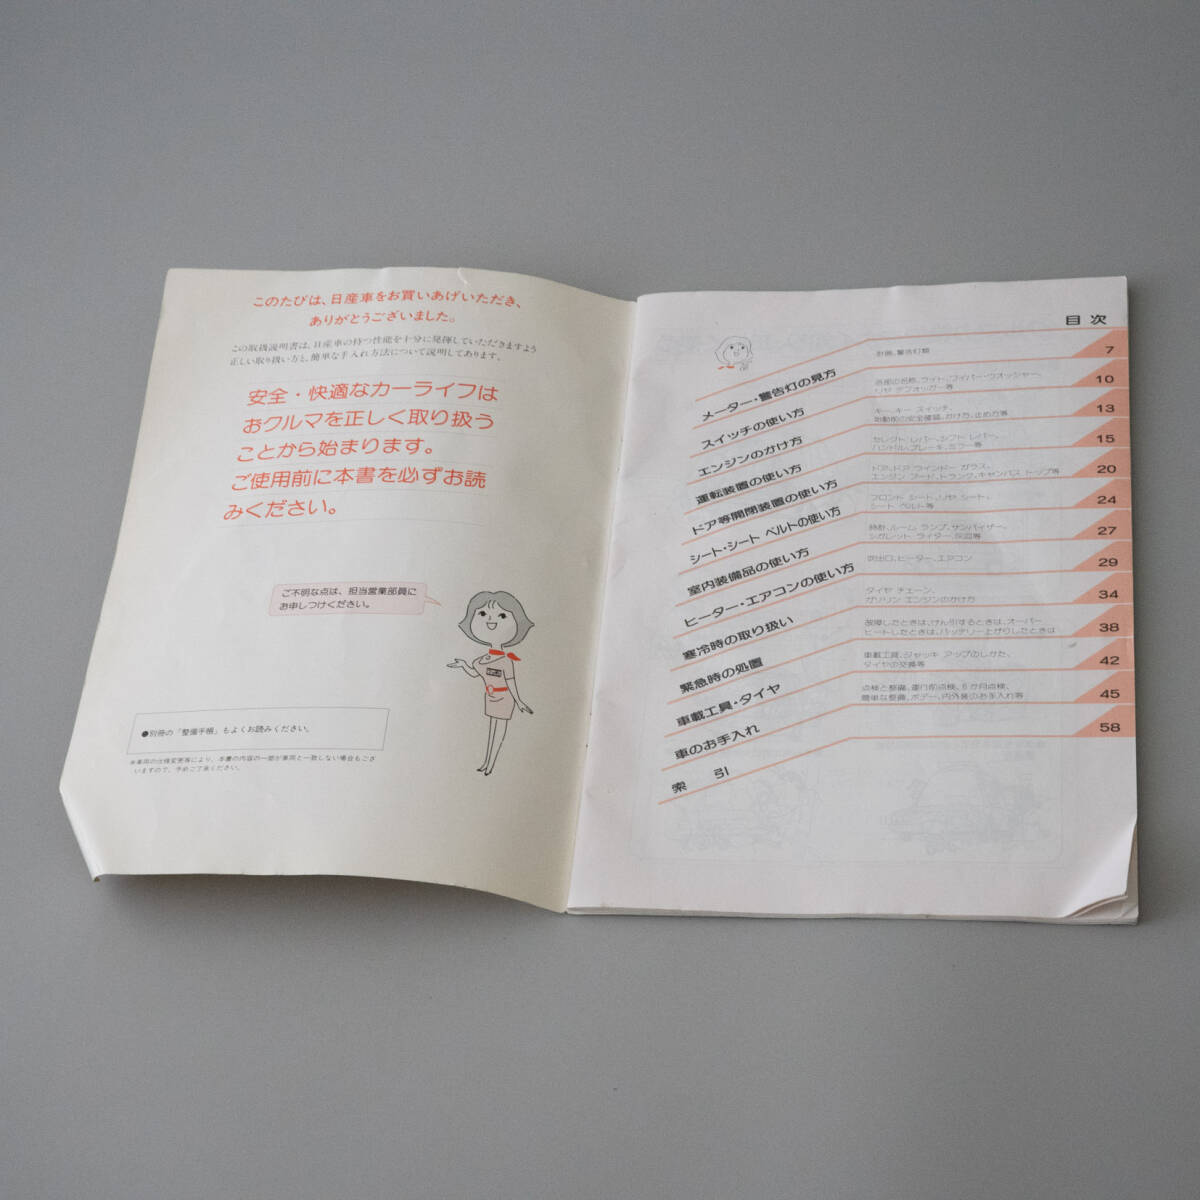 このたびは、日産車をお買いあげいただき、
ありがとうございました。
この取扱説明書は、日産車の持つ性能を十分に発揮していただきますよう
正しい取り扱い方と、簡単な手入れ方法について説明してあります。
安全・快適なカーライフは
おクルマを正しく取り扱う
ことから始まります。
ご使用前に本書を必ずお読
みください。
ご不明な点は、担当営業部員に
お申しつけください。
●別冊の「整備手帳」もよくお読みください。
※車両の仕様変更等により、本書の内容の一部が車両と一致しない場合もござ
いますので、予めご了承ください。
目 次
メーター・警告灯の見方 計器、警告灯類 7
スイッチの使い方 各部の名称、ライト、ワイパー・ウオッシャー、
リヤ デフォッガー等 10
エンジンのかけ方 キー、キー スイッチ、
始動前の安全確認、かけ方、止め方等 13
運転装置の使い方 セレクト レバー、シフト レバー、
ハンドル、ブレーキ、ミラー等 15
ドア等開閉装置の使い方 ドア、ドア ウインドー ガラス、
エンジン フード、トランク、キャンバス トップ等 20
シート・シート ベルトの使い方 フロント シート、リヤ シート、
シート ベルト等 24
室内装備品の使い方 時計、ルーム ランプ、サンバイザー、
シガレット ライター、灰皿等 27
ヒーター・エアコンの使い方 吹出口、ヒーター、エアコン 29
寒冷時の取り扱い タイヤ チェーン、
ガソリン エンジンのかけ方 34
緊急時の処置 故障したときは、けん引するときは、オーバー
ヒートしたときは、バッテリー上がりしたときは 38
車載工具・タイヤ 車載工具、ジャッキ アップのしかた、
タイヤの交換等 42
車のお手入れ 点検と整備、運行前点検、6か月点検、
簡単な整備、ボデー、内外装のお手入れ等 45
索 引 58